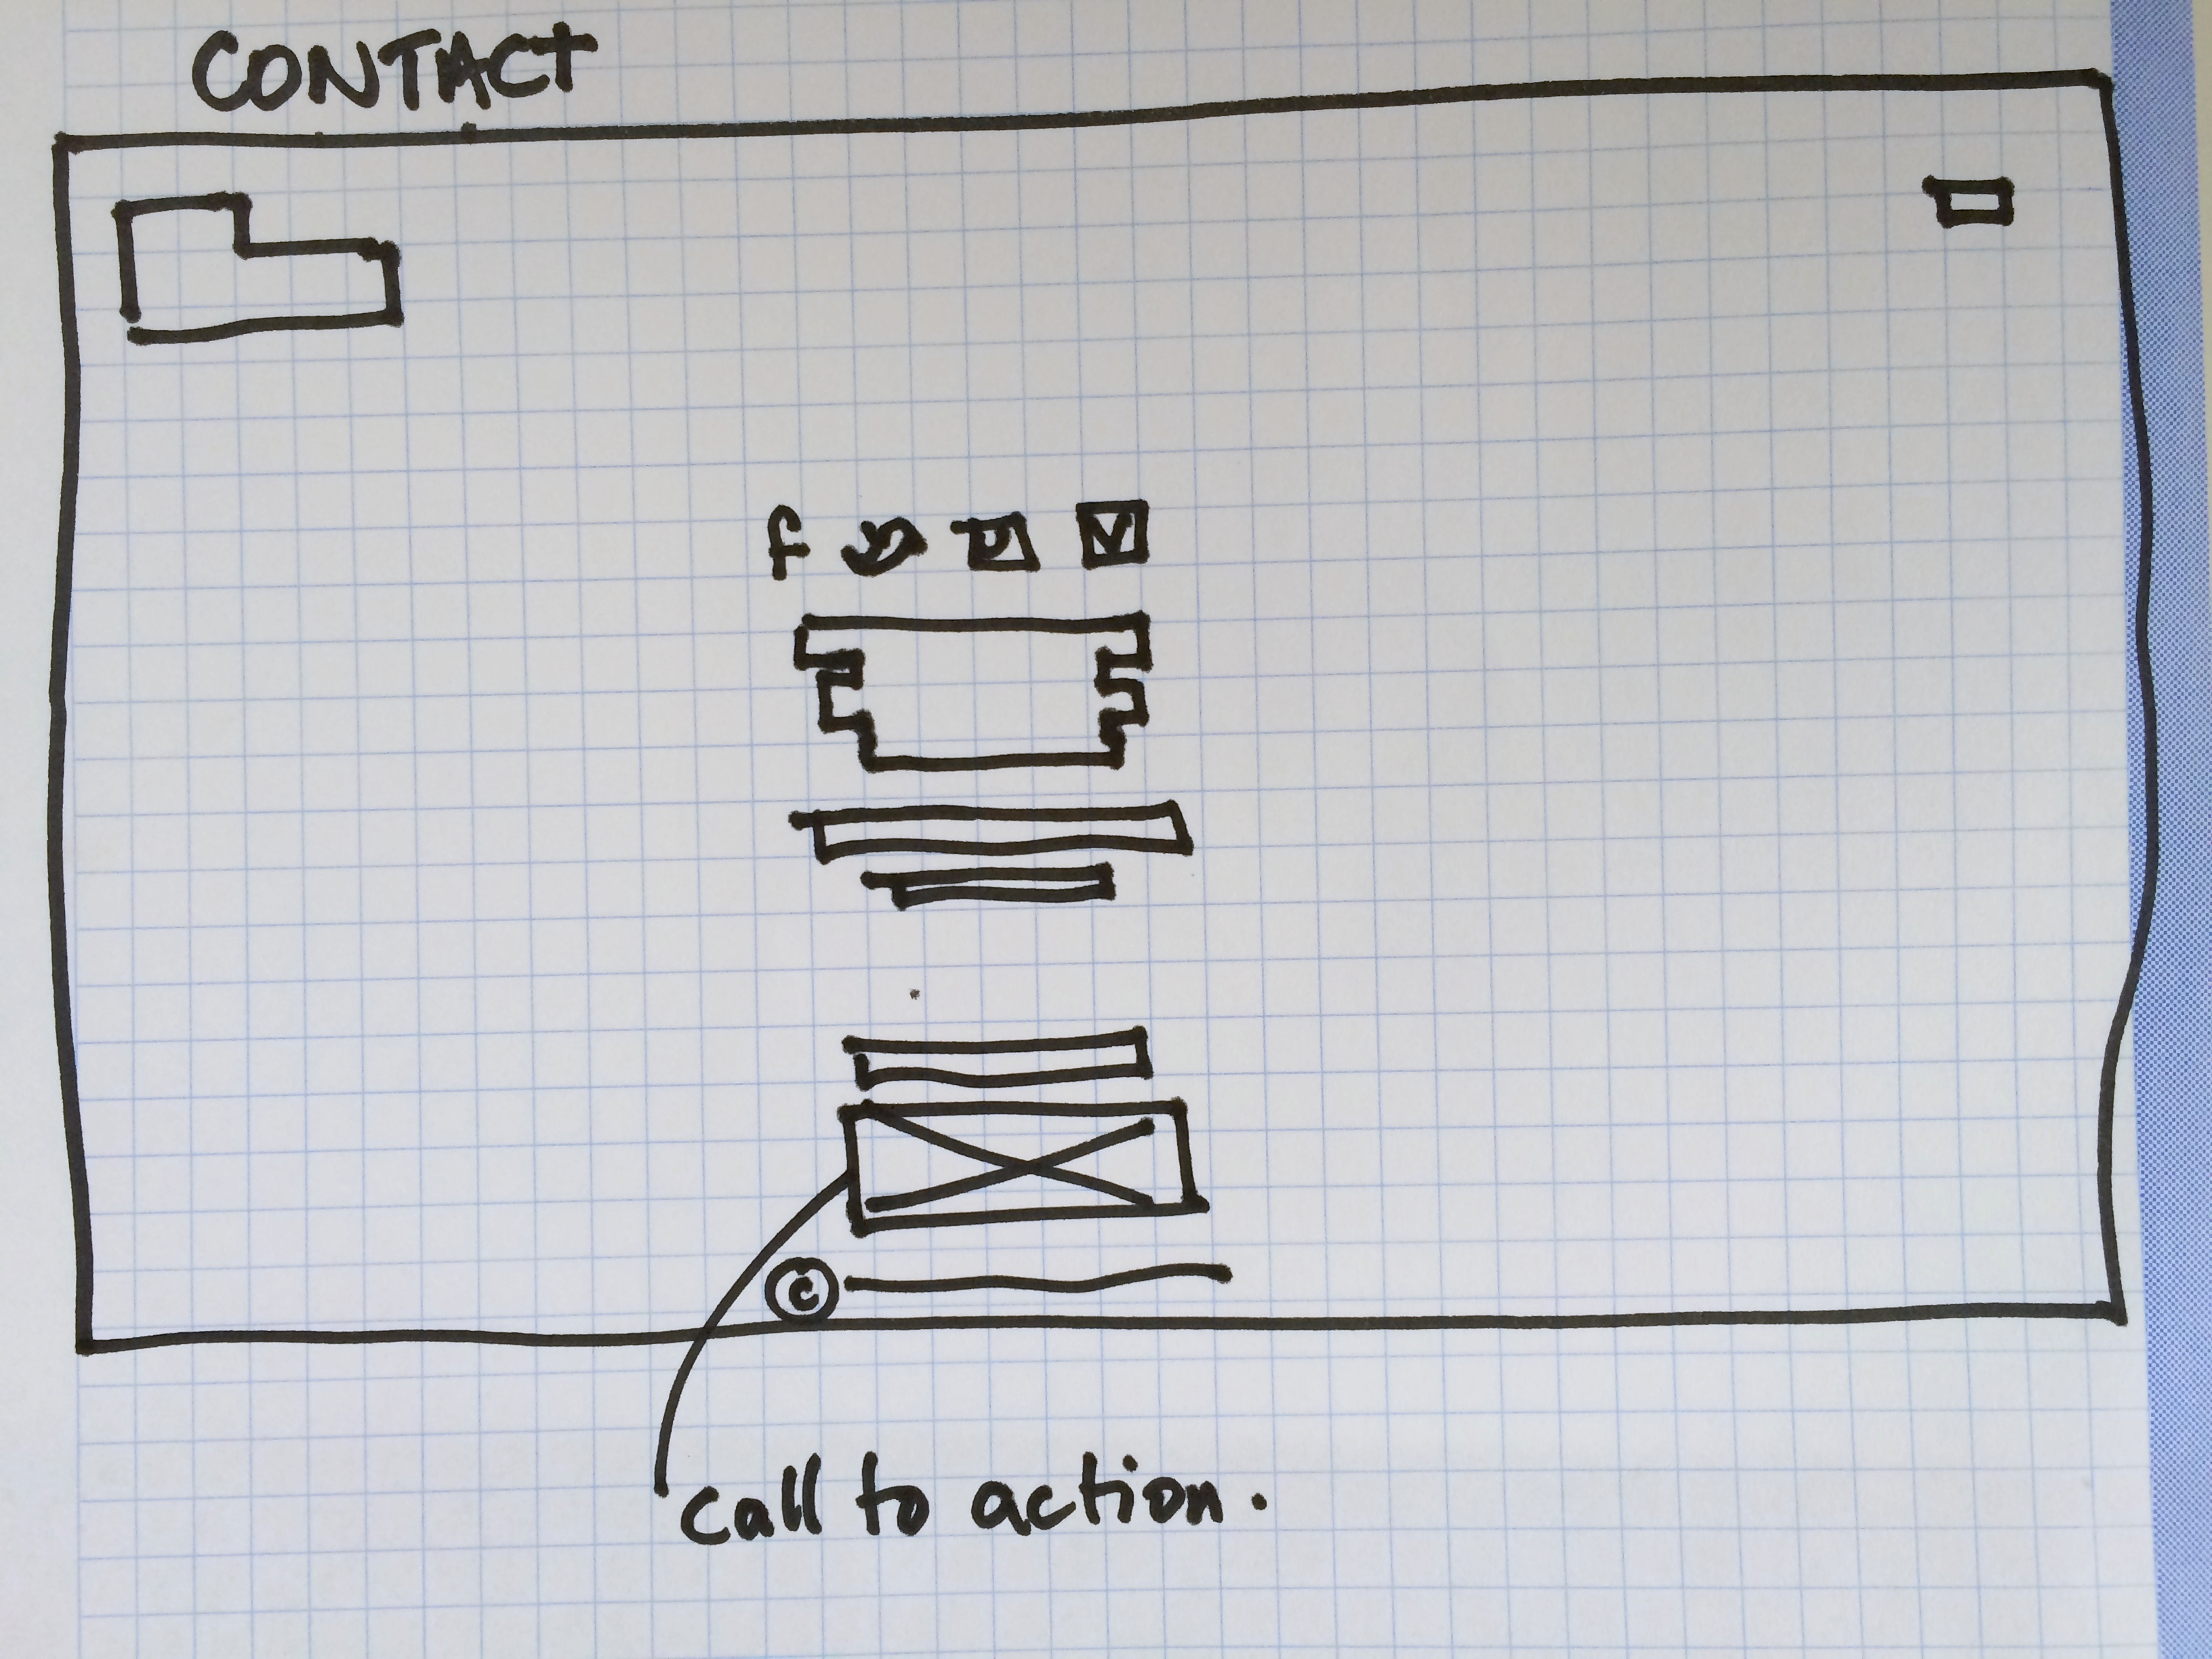 CONTACT
f
©
call to action.